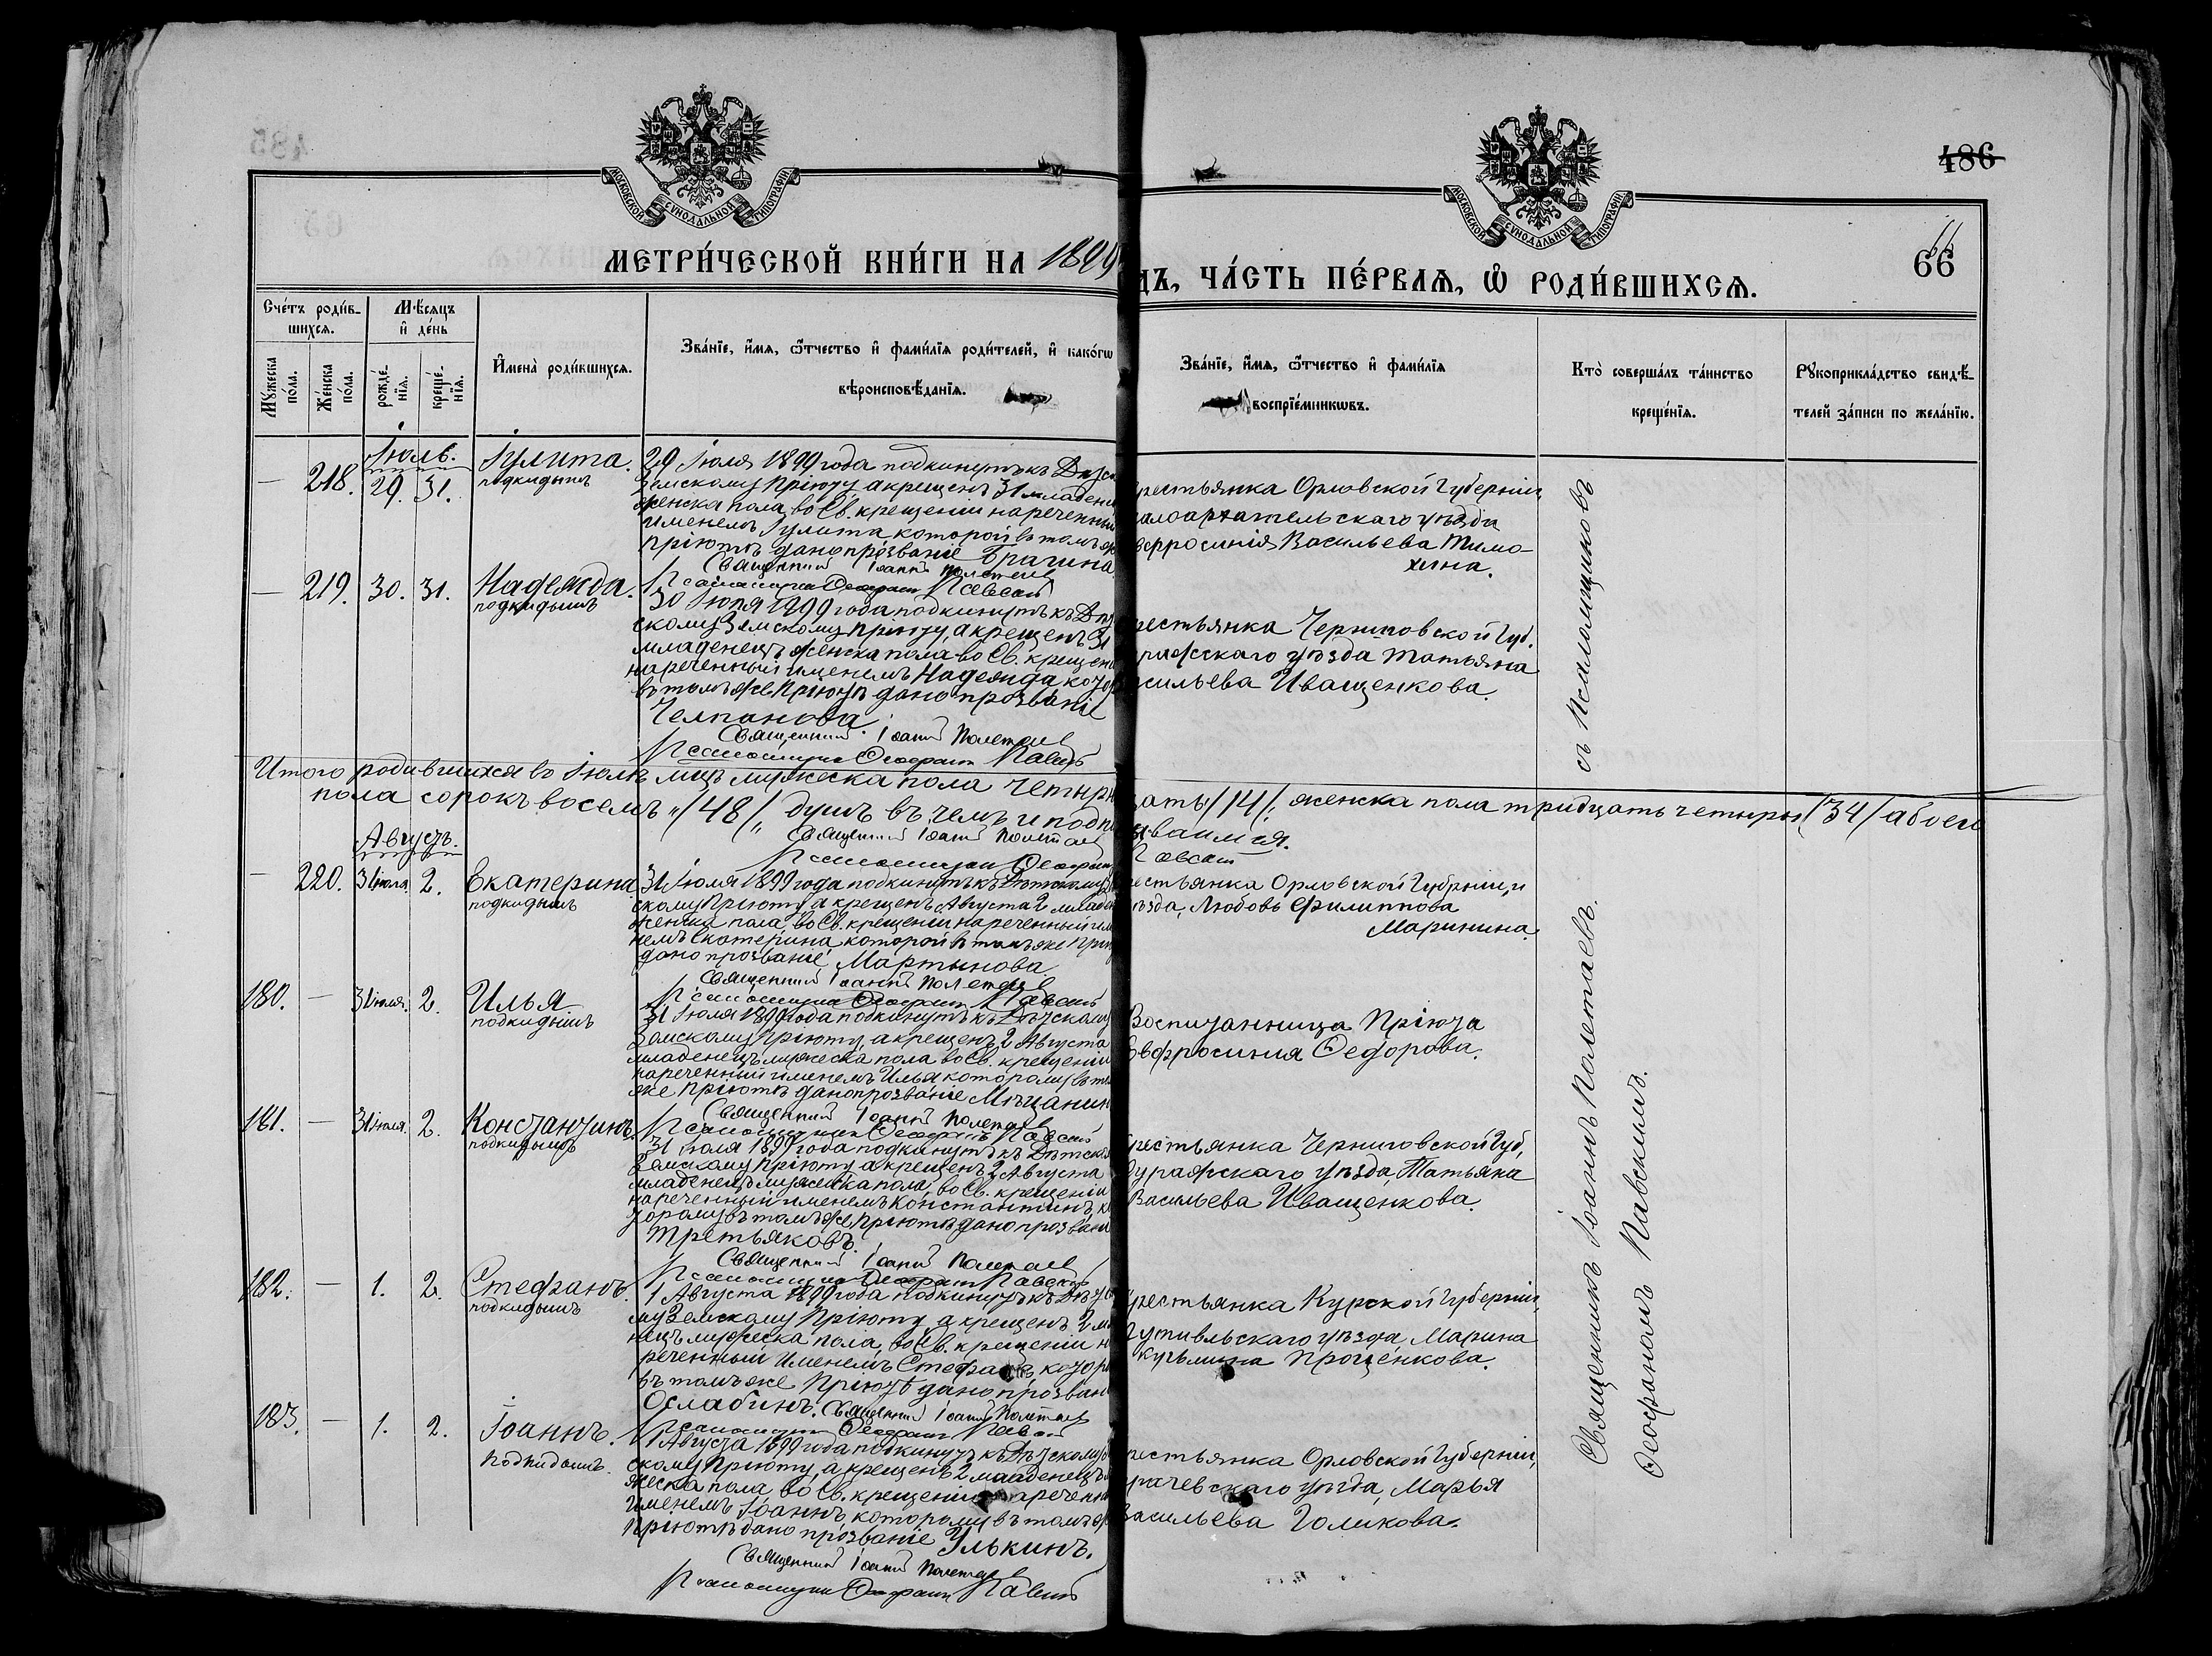 486
66
МОСКОВСКОЙ СУНОДАЛЬНОЙ ТИПОГРАФІИ
МОСКОВСКОЙ СУНОДАЛЬНОЙ ТИПОГРАФІИ
МЕТРИ́ЧЕСКОЙ КНИ́ГИ НА 1899
ДЪ, ЧА́СТЬ ПЕ́РВАѦ, Ѡ РОДИ́ВШИХСѦ.
Сче́тъ роди́в-
шихсѧ.
Мѣ́сѧцъ
и де́нь
Мꙋ́жеска
по́ла.
Же́нска
по́ла.
рожде́-
нїѧ.
креще́-
нїѧ.
Имена̀ роди́вшихсѧ.
Зва́нїе, и́мѧ, ѻ́тчество и фами́лїѧ роди́телей, и како́гѡ
вѣроисповѣ́данїѧ.
Зва́нїе, и́мѧ, ѻ́тчество и фами́лїѧ
воспрїе́мникѡвъ.
Кто̀ соверша́лъ та́инство
креще́нїѧ.
Рꙋкоприкла́дство свидѣ́-
телей за́писи по жела́нїю.
Іюль.
— 218. 29. 31. Іулита.
подкидышъ
29 Іюля 1899 года подкинутъ къ Дѣтск
Земскому Пріюту а крещенъ 31 младене
женска пола, во Св. крещеніи нареченный
именемъ Іулита, которой въ томъ же
Пріютѣ дано прозваніе Брагина.
Священникъ Іоаннъ Полетаевъ
Псаломщикъ Ѳеофанъ Павскій
рестьянка Орловской Губерніи,
алоархангельскаго уѣзда
вфросинія Васильева Тимо-
хина.
— 219. 30. 31. Надежда.
подкидышъ
30 Іюля 1899 года подкинутъ къ Дѣт
скому Земскому Пріюту, а крещенъ 31
младенецъ женска пола во Св. крещені
нареченный именемъ Надежда котор
въ томъ же Пріютѣ дано прозваніе
Челпанова.
Священникъ Іоаннъ Полетаевъ
Псаломщикъ Ѳеофанъ Павскій
рестьянка Черниговской Губ.
ражскаго уѣзда Татьяна
сильева Иващенкова.
Итого родившихся въ Іюлѣ мцѣ мужеска пола четырн
цать /14/, женска пола тридцать четыре /34/ абоего
пола сорокъ восемъ „/48/„ душъ въ чемъ и подпи
сываимся.
Священникъ Іоаннъ Полетаевъ
Псаломщикъ Ѳеофанъ
Павскій
Августъ.
— 220. 31 іюля 2. Екатерина
подкидышъ
31 Іюля 1899 года подкинутъ къ Дѣтскому Зем
скому Пріюту, а крещенъ Августа 2 младен
женска пола, во Св. крещеніи нареченный име
немъ Екатерина, которой въ томъ же Прію
дано прозваніе Мартынова.
Священникъ Іоаннъ Полетаевъ
Псаломщикъ Ѳеофанъ Павскій
естьянка Орловской Губрніи, и
ѣзда, Любовь Филиппова
Маринина.
180. — 31 іюля. 2. Илья
подкидышъ
31 Іюля 1899 года подкинутъ къ Дѣтскому
Земскому Пріюту, а крещенъ 2 Августа
младенецъ мужеска пола во Св. крещеніи
нареченный именемъ Илья которому въ то
же Пріютѣ дано прозваніе Мѣщанин
Священникъ Іоаннъ Полетаевъ
Псаломщикъ Ѳеофанъ Павскій
Воспитанница Пріюта
Евфросиния Ѳедорова.
181. — 31 іюля. 2. Константинъ.
подкидышъ
31 Іюля 1899 года подкинутъ къ Дѣтском
Земскому Пріюту а крещенъ 2 Августа
младенецъ мужеска пола, во Св. крещеніи
нареченный именемъ Константинъ, к
торому въ томъ же Пріютѣ дано прозвані
Третьяковъ.
Священникъ Іоаннъ Полетаевъ
Псаломщикъ Ѳеофанъ Павскій
рестьянка Черниговской Губ,
Суражскаго уѣзда, Татьяна
Васильева Иващенкова.
182. — 1. 2. Стефанъ.
подкидышъ
1 Августа 1899 года подкинутъ къ Дѣтско
му Земскому Пріюту, а крещенъ 2 мла
нецъ мужеска пола, во Св. крещеніи н
реченный именемъ Стефанъ, котор
въ томъ же Пріютѣ дано прозван
Ослабинъ.
Священникъ Іоаннъ Полетаевъ
Псаломщикъ Ѳеофанъ Павскій
рестьянка Курской Губерніи,
Путивльскаго уѣзда, Марина
Кузьмина Прощенкова.
183. — 1. 2. Іоаннъ.
подкидышъ.
1 Августа 1899 года подкинутъ къ Дѣтскому Зе
скому Пріюту, а крещенъ 2 младенецъ
жеска пола во Св. крещеніи нареченн
именемъ Іоаннъ, которому въ томъ же
Пріютѣ дано прозваніе Улькинъ.
Священникъ Іоаннъ Полетаевъ
Псаломщикъ Ѳеофанъ Павскій
рестьянка Орловской Губерніи,
рачевскаго уѣзда, Марья
Васильева Голикова.
Священникъ Іоаннъ Полетаевъ. съ Псаломщиковъ
Ѳеофаномъ Павскимъ.